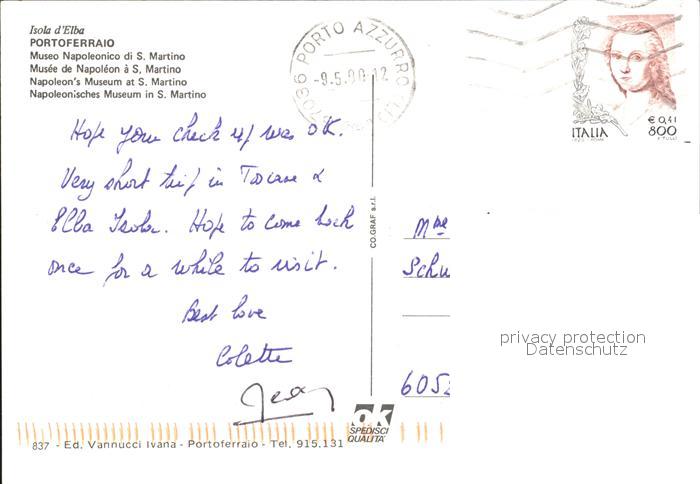 Isola d'Elba
PORTOFERRAIO
Museo Napoleonico di S. Martino
Musée de Napoléon à S. Martino
Napoleon's Museum at S. Martino
Napoleonisches Museum in S. Martino
PORTO AZZURRO
-9.5. 12
ITALIA
€ 0,41
800
Hope your check up was OK.
Very short trip in Toscane &
Elba Isola. Hope to come back
once for a while to visit.
Best love
Colette
Jean
CO.GRAF s.r.l.
Mme
Schu
privacy protection
Datenschutz
605
ok
SPEDISCI
QUALITÀ
837 - Ed. Vannucci Ivana - Portoferraio - Tel. 915.131